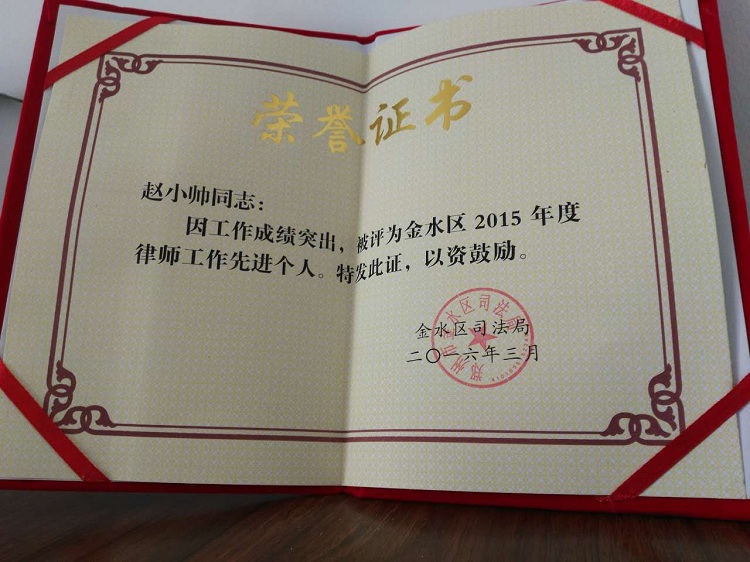 荣誉证书
赵小帅同志：
因工作成绩突出，被评为金水区 2015 年度
律师工作先进个人。特发此证，以资鼓励。
金水区司法局
二〇一六年三月
郑州市金水区司法局